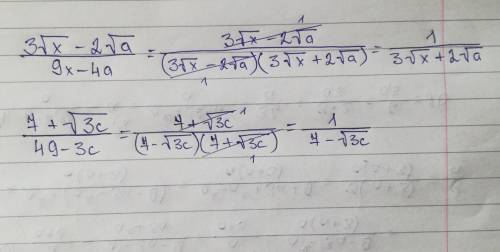 (3√x - 2√a)/(9x - 4a) = (3√x - 2√a)^1/((3√x - 2√a)_1 (3√x + 2√a)) = 1/(3√x + 2√a)
(7 + √3c)/(49 - 3c) = (7 + √3c)^1/((7 - √3c)(7 + √3c)_1) = 1/(7 - √3c)